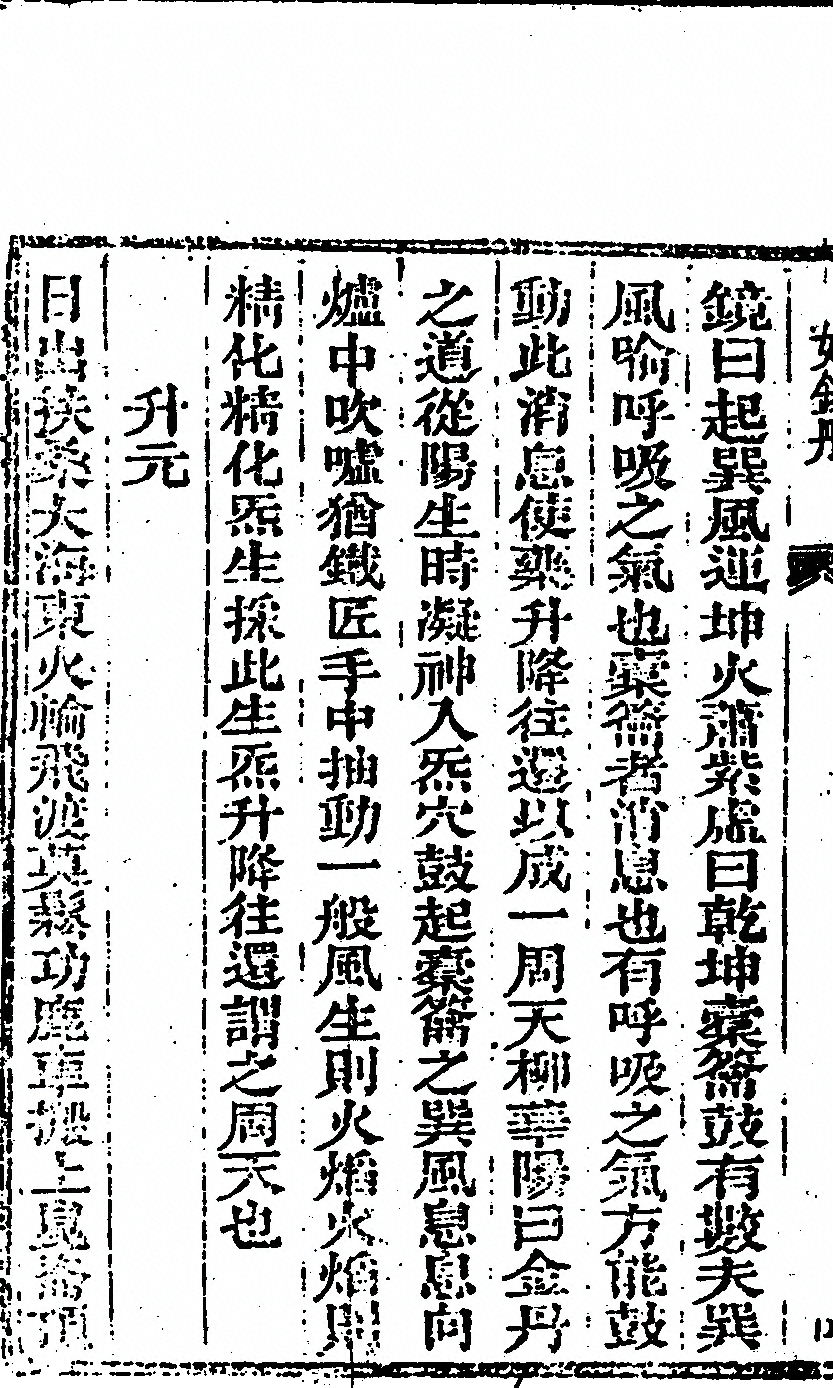 女金丹
鏡曰起巽風運坤火蕭紫虛曰乾坤橐籥鼓有數夫巽
風喻呼吸之氣也橐籥者消息也有呼吸之氣方能鼓
動此消息使藥升降往還以成一周天柳華陽曰金丹
之道從陽生時凝神入炁穴鼓起橐籥之巽風息息向
爐中吹噓猶鐵匠手中抽動一般風生則火焰火焰則
精化精化炁生採此生炁升降往還謂之周天也
升元
日出扶桑大海東火輪飛渡莫鬆功鹿車搬上崑崙頂